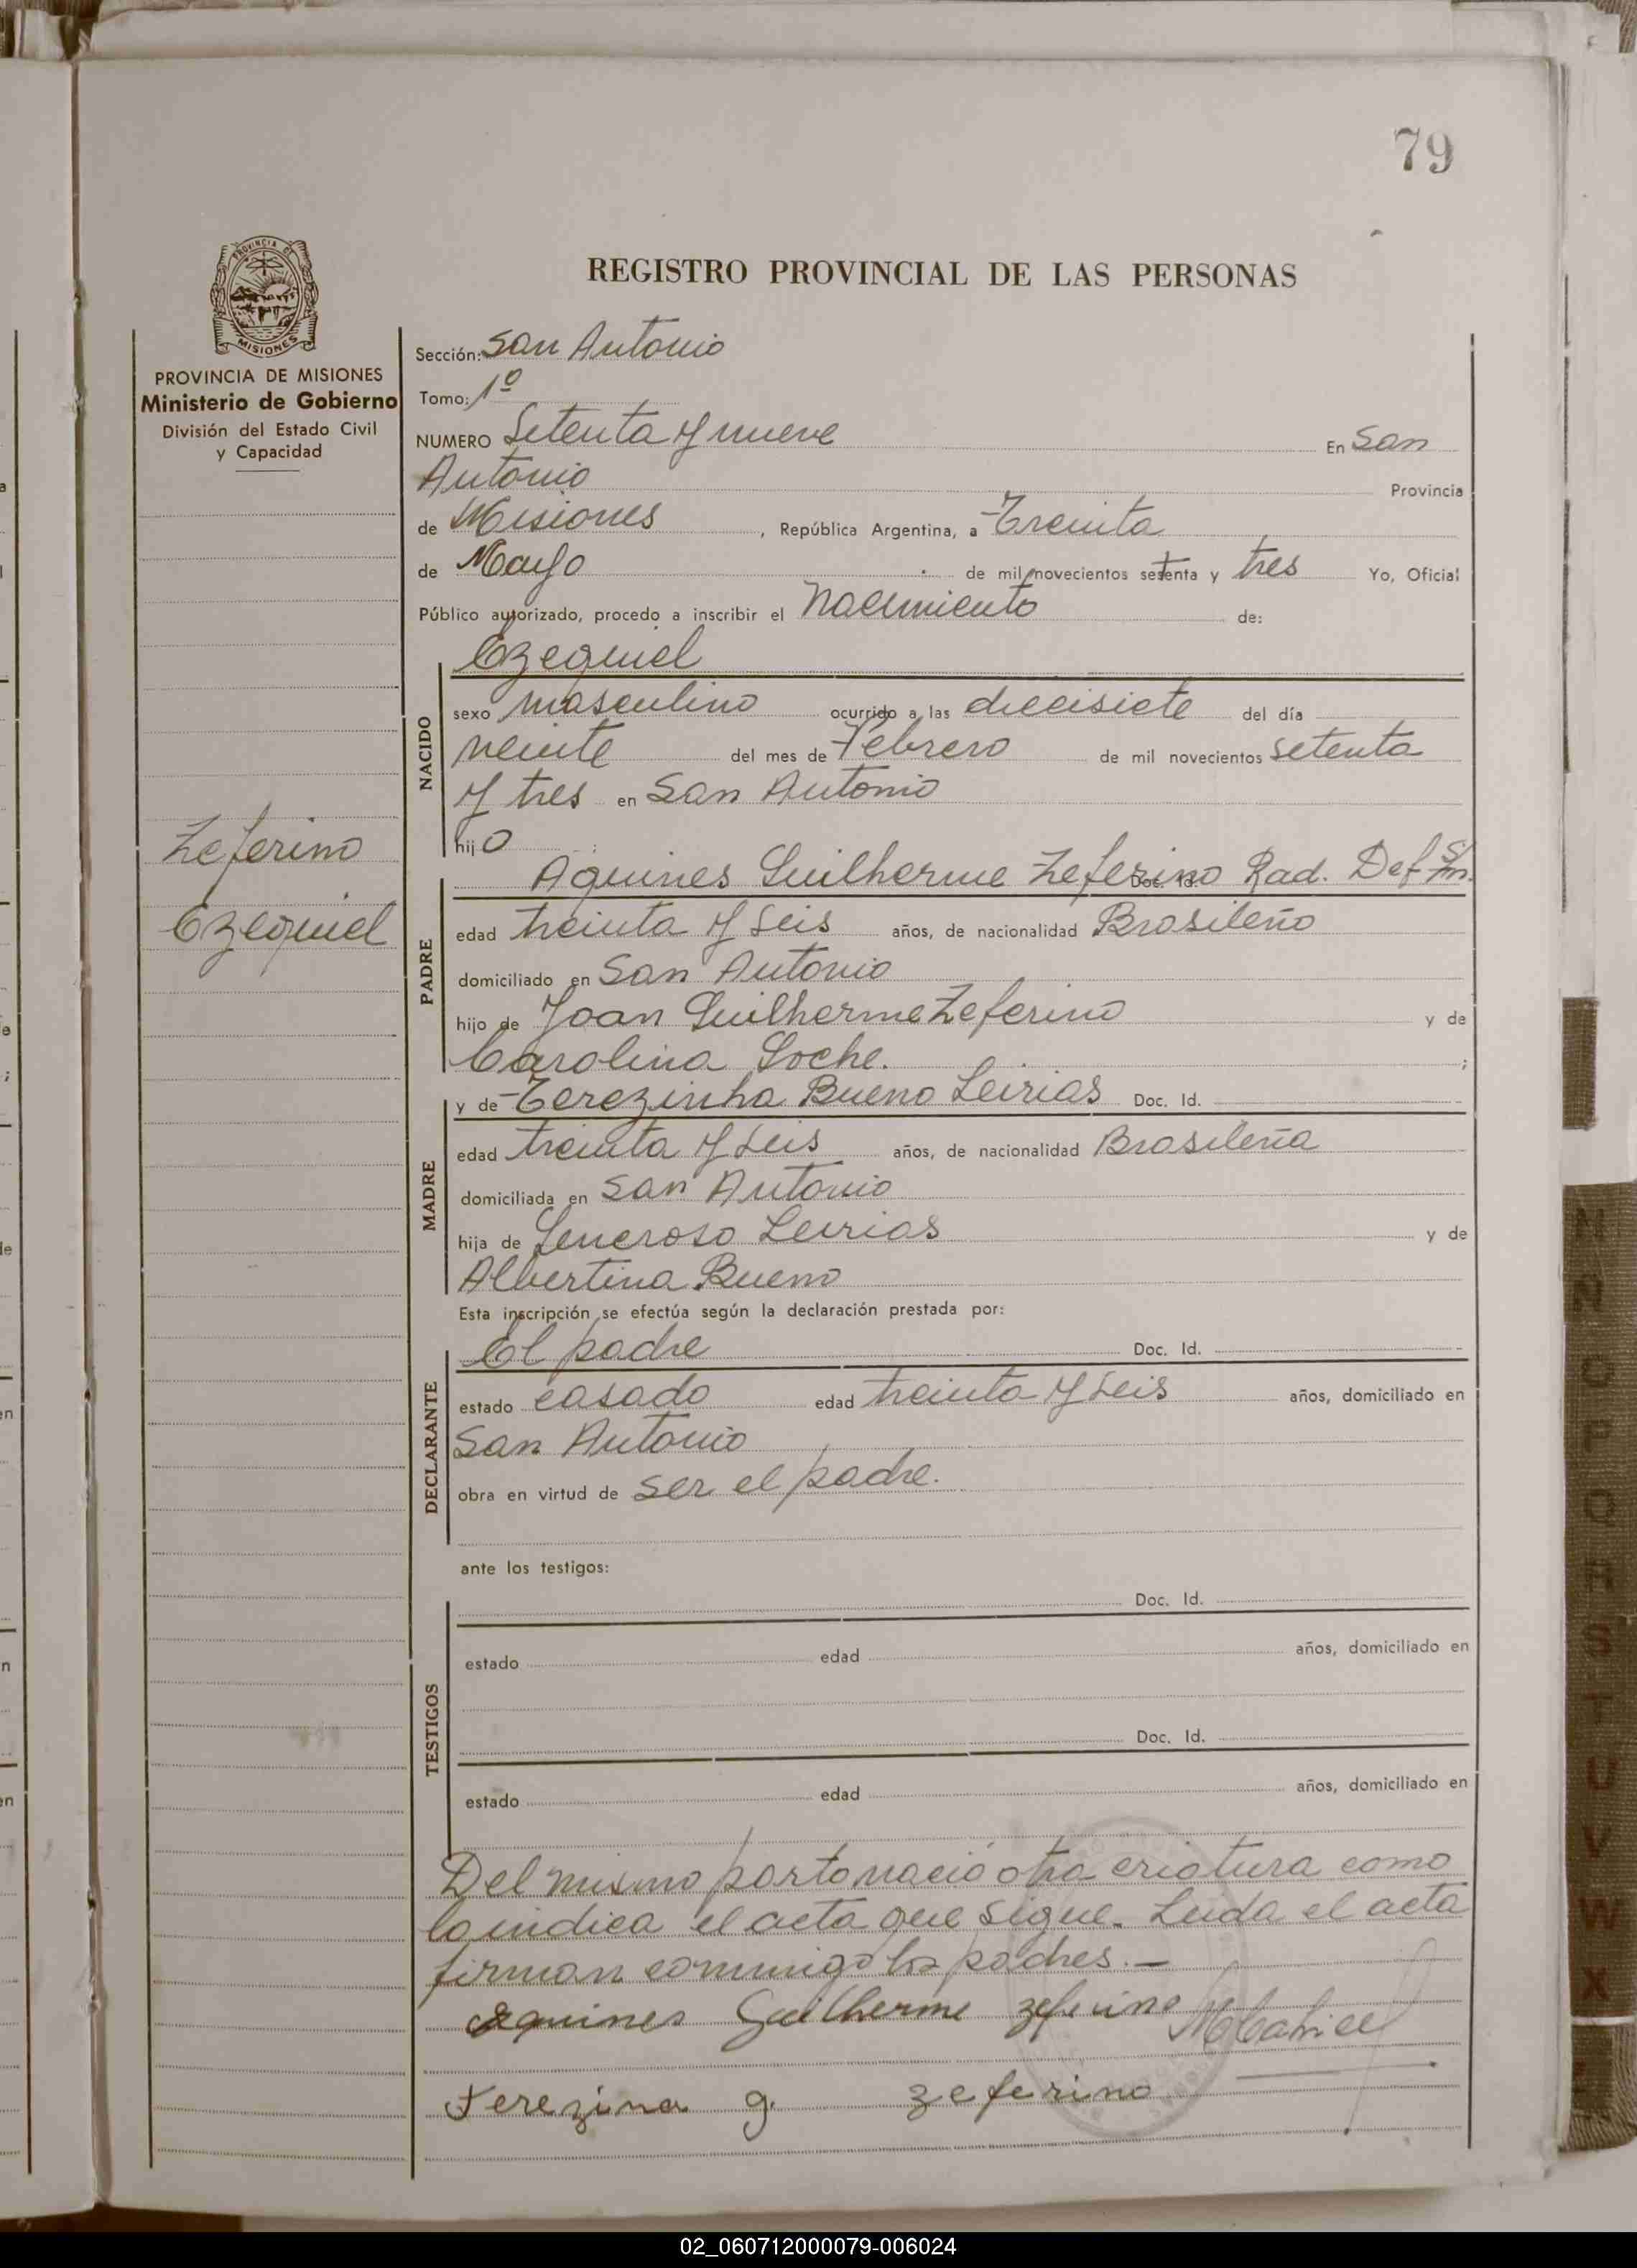 79
REGISTRO PROVINCIAL DE LAS PERSONAS
PROVINCIA DE MISIONES
Ministerio de Gobierno
División del Estado Civil
y Capacidad
Zeferino
Ezequiel
Sección: San Antonio
Tomo: 1º
NUMERO Setenta y nueve En San
Antonio Provincia
de Misiones, República Argentina, a Treinta
de Mayo de mil novecientos setenta y tres Yo, Oficial
Público autorizado, procedo a inscribir el nacimiento de:
Ezequiel
NACIDO
sexo masculino ocurrido a las diecisiete del día
veinte del mes de Febrero de mil novecientos setenta
y tres en San Antonio
hijo
PADRE
Aquines Guilherme Zeferino Doc. Id. Rad. Def S/n.
edad treinta y seis años, de nacionalidad Brasileño
domiciliado en San Antonio
hijo de Joan Guilherme Zeferino y de
Carolina Goche.;
MADRE
y de Terezinha Bueno Leirias Doc. Id.
edad treinta y seis años, de nacionalidad Brasileña
domiciliada en San Antonio
hija de Generoso Leirias y de
Albertina Bueno
Esta inscripción se efectúa según la declaración prestada por:
DECLARANTE
El padre Doc. Id.
estado casado edad treinta y seis años, domiciliado en
San Antonio
obra en virtud de ser el padre.
ante los testigos:
TESTIGOS
Doc. Id.
estado edad años, domiciliado en
Doc. Id.
estado edad años, domiciliado en
Del mismo parto nació otra criatura como
lo indica el acta que sigue. Leida el acta
firman conmigo los padres.—
Aquines Guilherme zeferino
Terezina g. zeferino
M N O P Q R S T U V W X
02_060712000079-006024